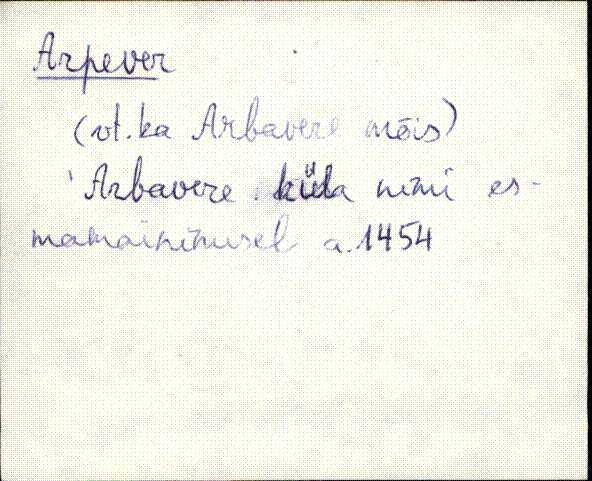 Arpever
(vt. ka Arbavere mõis)
'Arbavere küla nimi es-
mamainimisel a. 1454